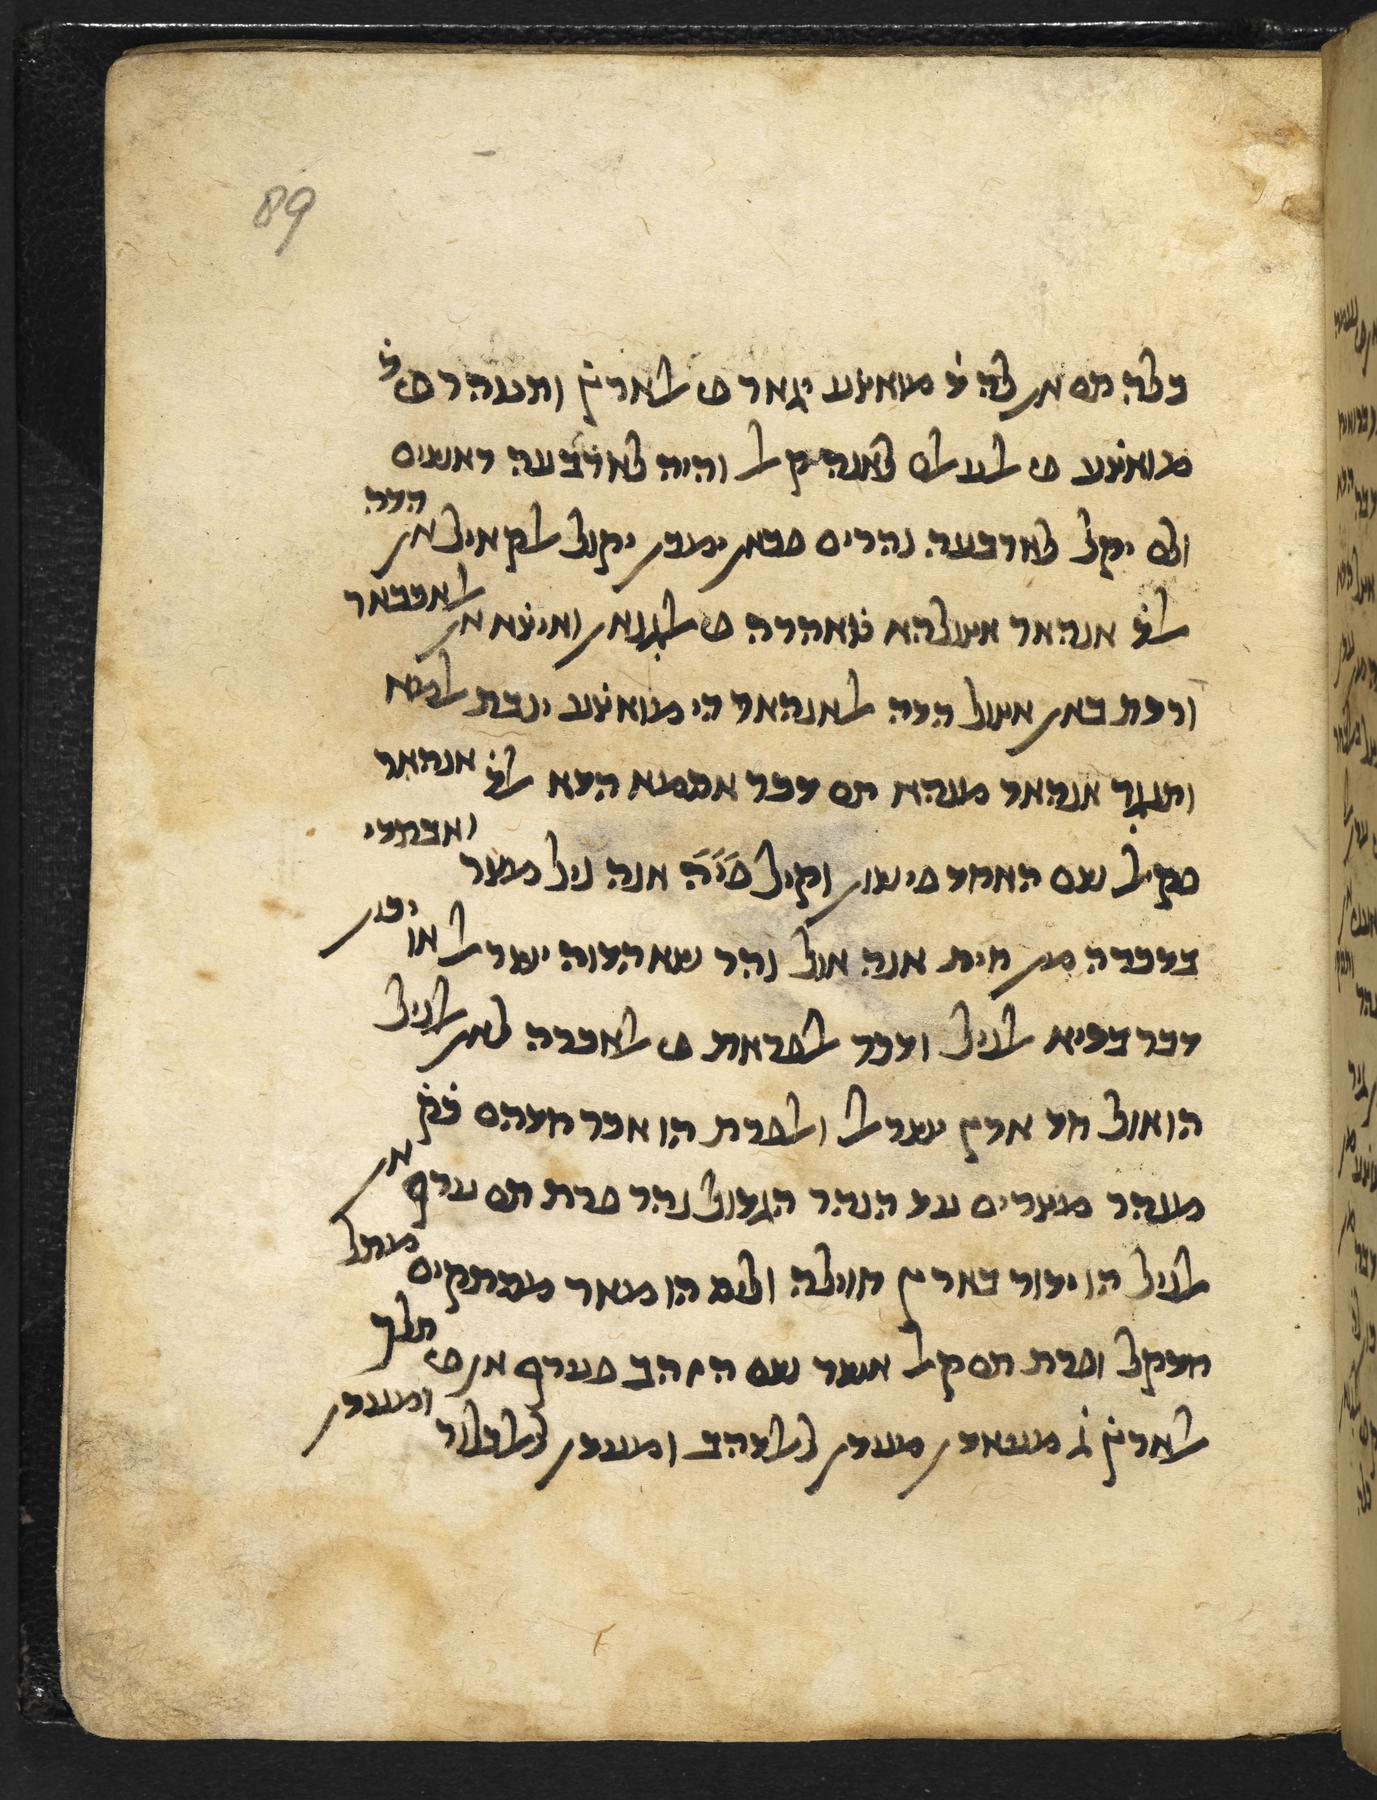 89
כלה תם אן לה ד̇ מואצ̇ע יגאר פי אלארץ̇ ותננהר פי ד̇
מואצ̇ע פי אלעאלם לאנה קאל והיה לארבעה ראשים
ולם יקל לארבעה נהרים פבאן ימכן יקול אלקאיל אן הדה
אלד̇ אנהאר אצולהא ט̇אהרה פי אלג̇נאן ואיצ̇א אן אלאכבאר
ורדת באן אצול הדה אלאנהאר הי מואצ̇ע ינבת אלמא
ותנג̇ר אנהאר מנהא תם דכר אסמא הדא אלד̇ אנהאר
פקאל שם האחד פישון וקיל פיה אנה ניל מצר ואבתדי
בדכרה מן חית אנה אול נהר שאהדוה ישראל או יכון
דכר בדיא אלניל ודכר אלפראת פי אלאכרה לאן אלניל
הו אול חד ארץ ישראל ואלפרת הו אכר חדהם כק̇
מנהר מצרים עד הנהר הגדול נהר פרת תם ערף אן
אלניל הו ידור בארץ חוילה ולם הו מגאר מפתקים מתל
חדקל ופרת תם קאל אשר שם הזהב פערף אן פי תלך
אלארץ̇ ג̇ מעאדן מעדן ללדהב ומעדן ללבלור ומעדן